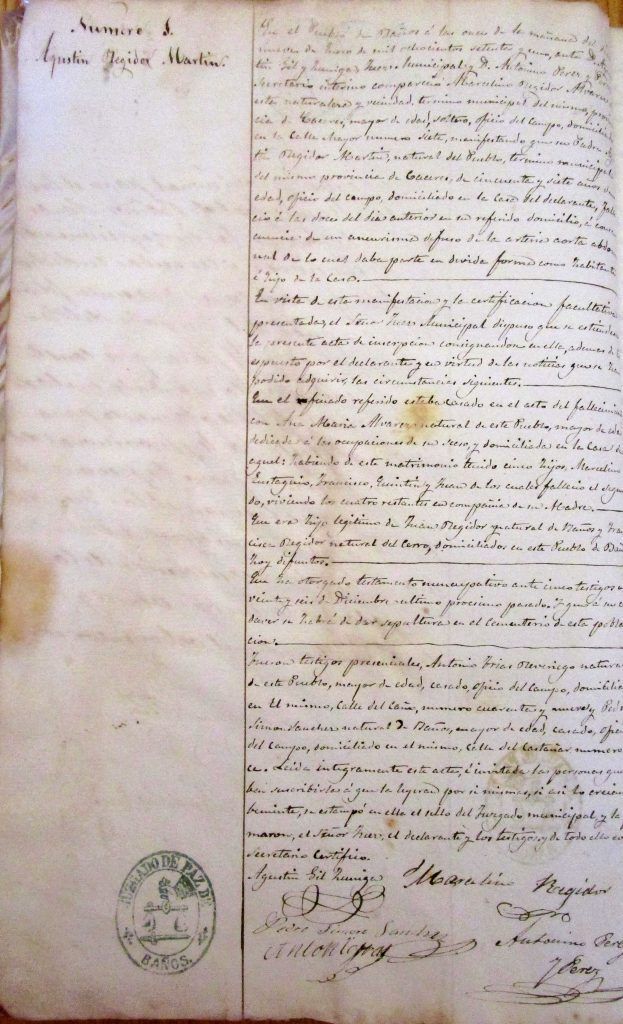 Numero 5.
Agustin Regidor Martin.
En el Pueblo de Baños á las once de la mañana del
nueve de Enero de mil ochocientos setenta y uno, ante D.
Gil y Zuniga, Juez Municipal y D. Antonino Perez y
Secretario interino comparecio Marcelino Regidor Alvarez
esta naturaleza y vecindad, termino municipal del mismo,
de Caceres, mayor de edad, soltero, oficio del Campo,
en la Calle Mayor numero siete, manifestando que su Padre
Regidor Martin, natural del Pueblo, termino municipal
del mismo provincia de Caceres, de cincuenta y siete años de
edad, oficio del campo, domiciliado en la Casa del declarante,
á las doces del dia anterior en su referido domicilio, á
de un aneurisma difuso de la arteria aorta
de lo cual daba parte en devida forma como habitante
é hijo de la Casa.
En vista de esta manifestacion y la certificacion facultativa
presentada, el Señor Juez Municipal dispuso que se
la presente acta de inscripcion consignandose en ella, ademas de lo
espuesto por el declarante y en virtud de las noticias que se
podido adquirir, las circunstancias siguientes.
Que el finado referido estaba casado en el acto del
con Ana Maria Alvarez natural de este Pueblo, mayor de
dedicada á las ocupaciones de su secso, y domiciliada en la Casa de
aquel: Habiendo de este matrimonio tenido cinco hijos, Marcelino
Eustaquio, Francisco, Quintin y Juan de los cuales fallecio el
viviendo los cuatro restantes en compañia de su Madre.
Que era hijo legitimo de Juan Regidor natural de Baños y
Regidor natural del Cerro, domiciliados en este Pueblo de
hoy difuntos.
Que ha otorgado testamento nuncupativo ante cinco testigos
veinte y seis de Diciembre ultimo procsimo pasado. Y que á su
se habrá de dar sepultura en el Cementerio de esta
Fueron testigos presenciales, Antonio Frias Reveriego
de este Pueblo, mayor de edad, casado, oficio del Campo,
en el mismo, Calle del Caño, numero cuarenta y nueve y
Simon Sanchez natural de Baños, mayor de edad, casado,
del Campo, domiciliado en el mismo, Calle del Castañar numero
Leida integramente esta acta, é invitada las personas que
suscribirla á que la leyeran por si mismas, si asi lo
se estampó en ella el sello del Juzgado municipal y la
el Señor Juez, el declarante y los testigos y de todo ello
Secretario Certifico.
Agustin Gil Zuniga Marcelino Regidor
Simon Sanchez
Antonio Frias Antonino Perez
y Perez
JUZGADO DE PAZ DE
BAÑOS.